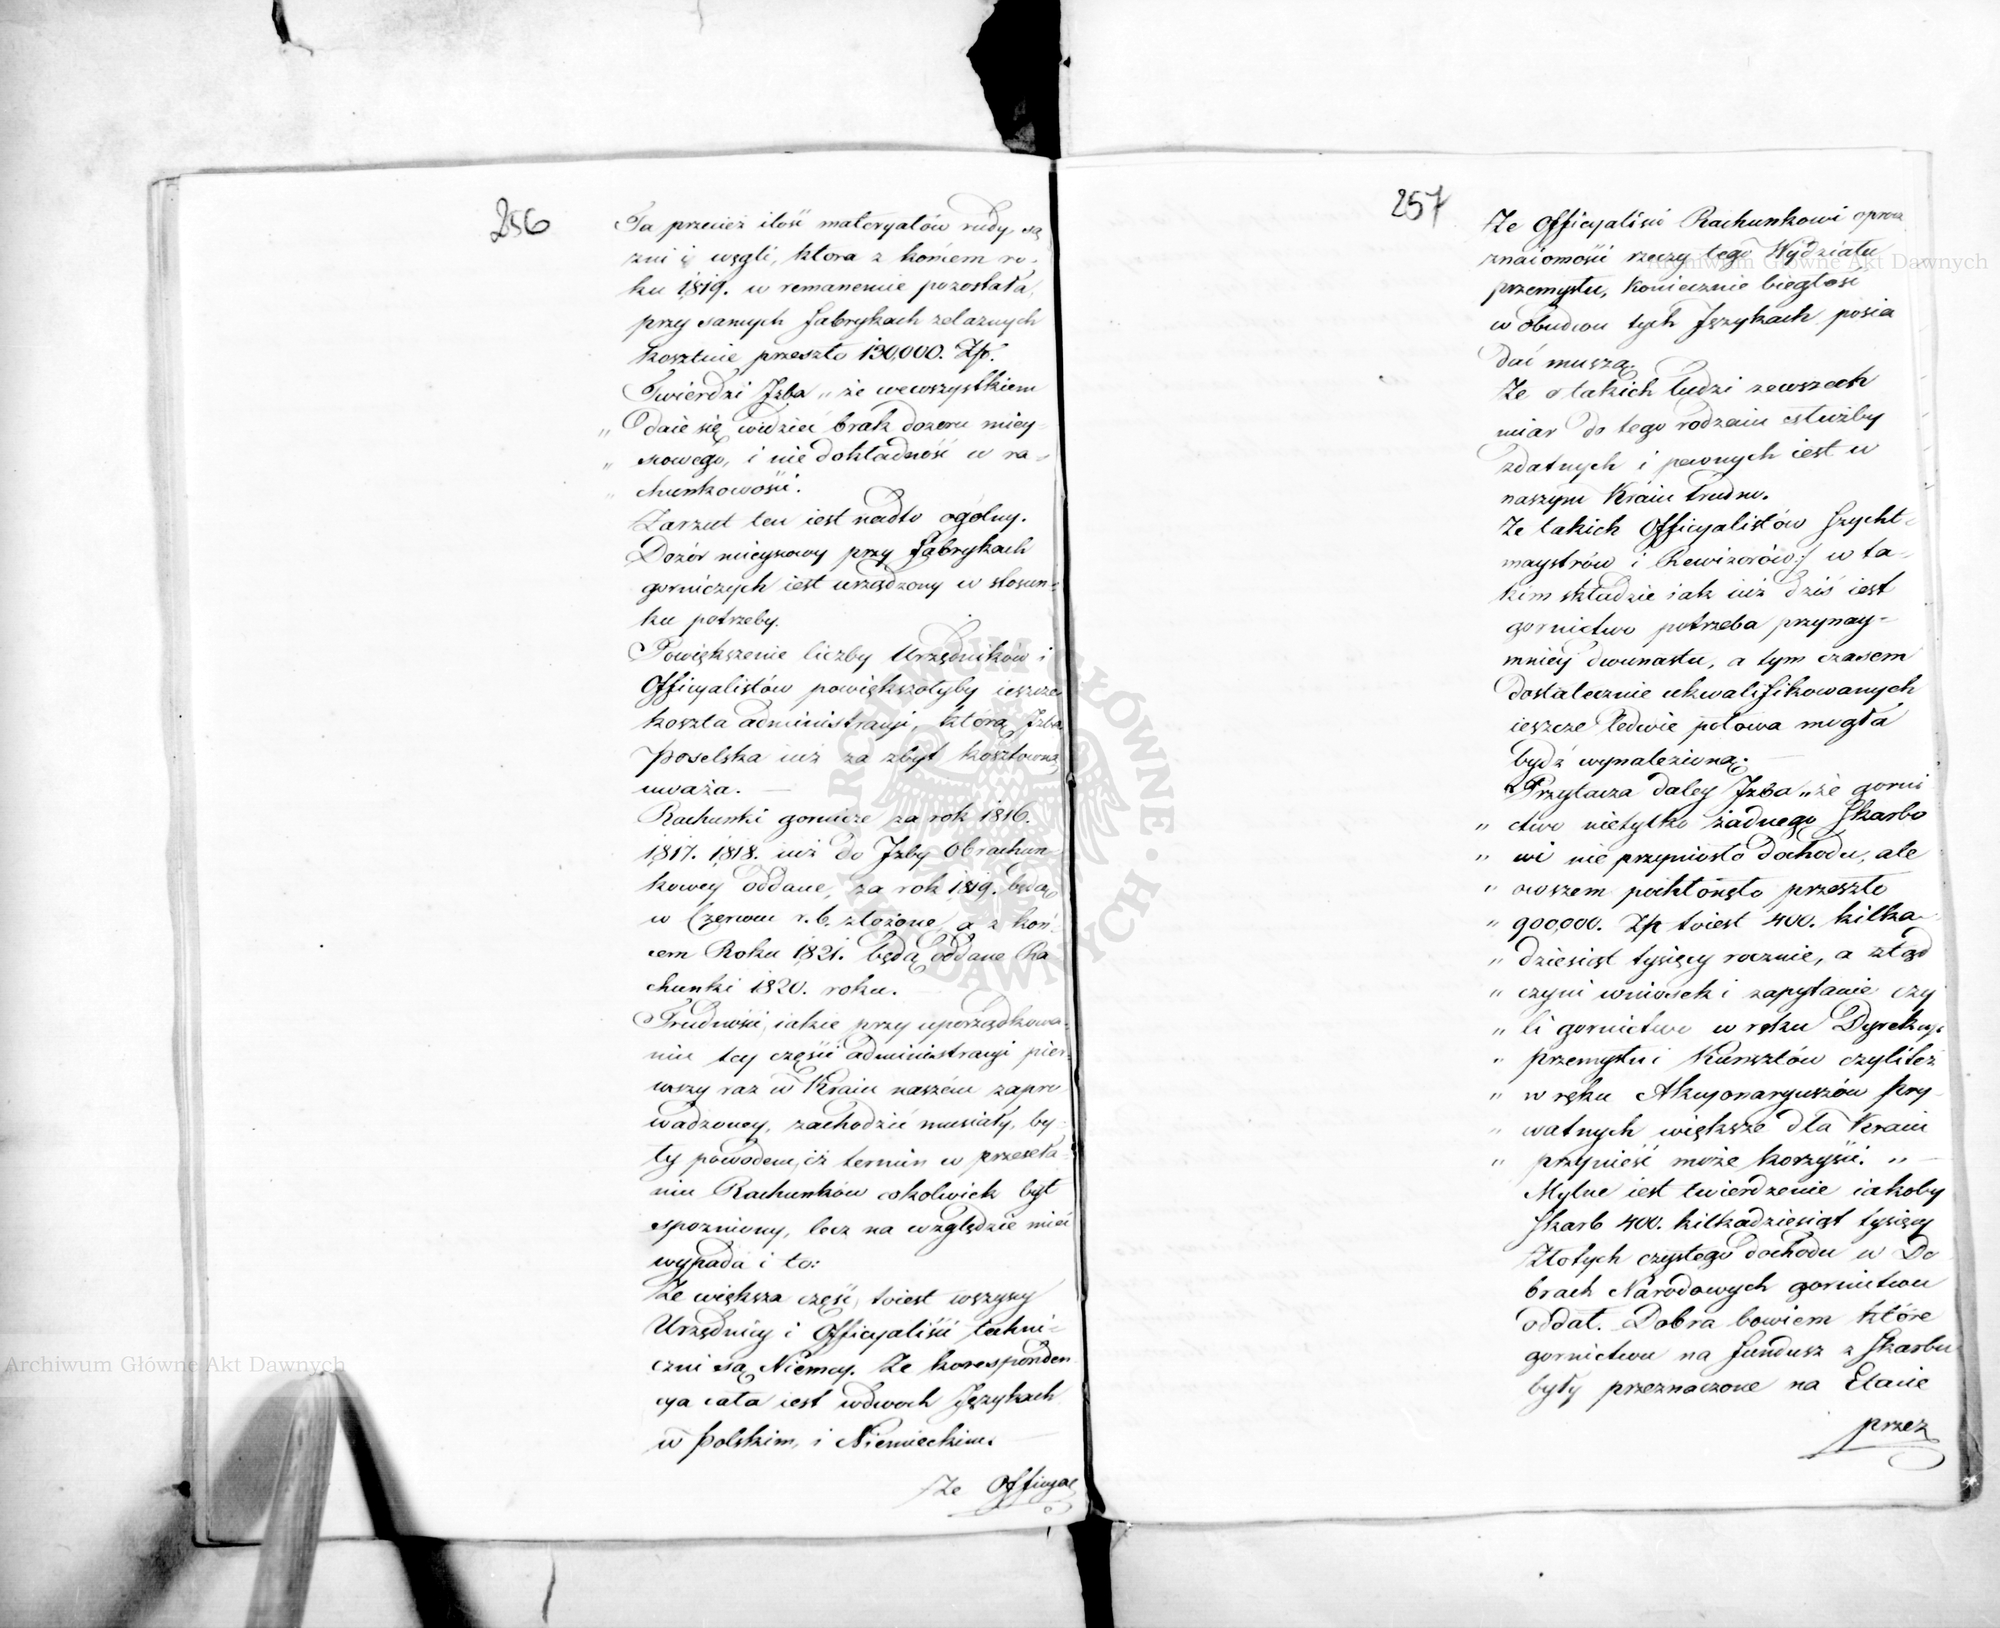 256
Ta przecież ilość materyałów rudy, są
żni i węgli, ktora z końcem ro-
ku 1819. w remanencie pozostała,
przy samych fabrykach zelaznych
kosztuie przeszło 130,000. Zł.
Twierdzi Jzba „że wewszystkiem
„ daie się widzieć brak dozoru miey-
„ scowego, i niedokładność w ra-
„ chunkowości.
Zarzut ten iest nadto ogólny.
Dozór mieyscowy przy fabrykach
gorniczych iest urządzony w stosun-
ku potrzeby.
Powiększenie liczby Urzędników i
Officyalistów powiększyłyby ieszcze
koszta administracyi, którą Jzba
Poselska iuż za zbyt kosztowną
uważa. —
Rachunki gornicze za rok 1816.
1817. 1818. iuż do Jzby Obrachun-
kowey oddane, za rok 1819. będą
w Czerwcu r. b. złożone, a z koń-
cem Roku 1821. będą oddane Ra
chunki 1820. roku. —
Trudności, iakie przy uporządkowa-
niu tey części administracyi pier-
wszy raz w Kraiu naszém zapro
wadzoney, zachodzić musiały, by-
ły powodem, iż termin w przesła-
niu Rachunków cokolwiek był
spozniony, lecz na względzie mieć
wypada i to:
Że większa część, toiest wszyscy
Urzędnicy i Officyaliści techni-
czni są Niemcy. Że koresponden
cya cała iest wdwóch Językach
w Polskim, i Niemieckim. —
Że Officyal
257
Że Officyaliści Rachunkowi oprocz
znaiomości rzeczy tego Wydziału
przemysłu, koniecznie biegłość
w obudwu tych Językach posia
dać muszą.
Że o takich ludzi zewszech
miar do tego rodzaiu służby
zdatnych i pewnych iest w
naszym Kraiu trudno.
Że takich Officyalistów Szycht-
maystrów i Rewizorów:/ w ta-
kim składzie iak iuż dziś iest
gornictwo potrzeba przynay-
mniey dwunastu, a tym czasem
dostatecznie ukwalifikowanych
ieszcze ledwie połowa mogła
bydź wynalezioną. —
Przytacza daley Jzba „że gorni
„ ctwo nietylko żadnego Skarbo
„ wi nie przyniosło dochodu, ale
„ owszem pochłonęło przeszło
„ 900,000. Zł toiest 400. kilka-
„ dziesiąt tysięcy rocznie, a ztąd
„ czyni wniosek i zapytanie czy
„ li gornictwo w ręku Dyrekcyi
„ przemysłu i Kunsztów czyliteż
„ w ręku Akcyonaryuszów pry
„ watnych większe dla Kraiu
„ przynieść może korzyści. „ —
Mylne iest twierdzenie iakoby
Skarb 400. kilkadziesiąt tysięcy
Złotych czystego dochodu w Do
brach Narodowych gornictwu
oddał. Dobra bowiem które
gornictwu na fundusz z Skarbu
były przeznaczone na Etacie
przez
Archiwum Główne Akt Dawnych
Archiwum Główne Akt Dawnych
ARCHIWUM GŁÓWNE • AKT DAWNYCH •